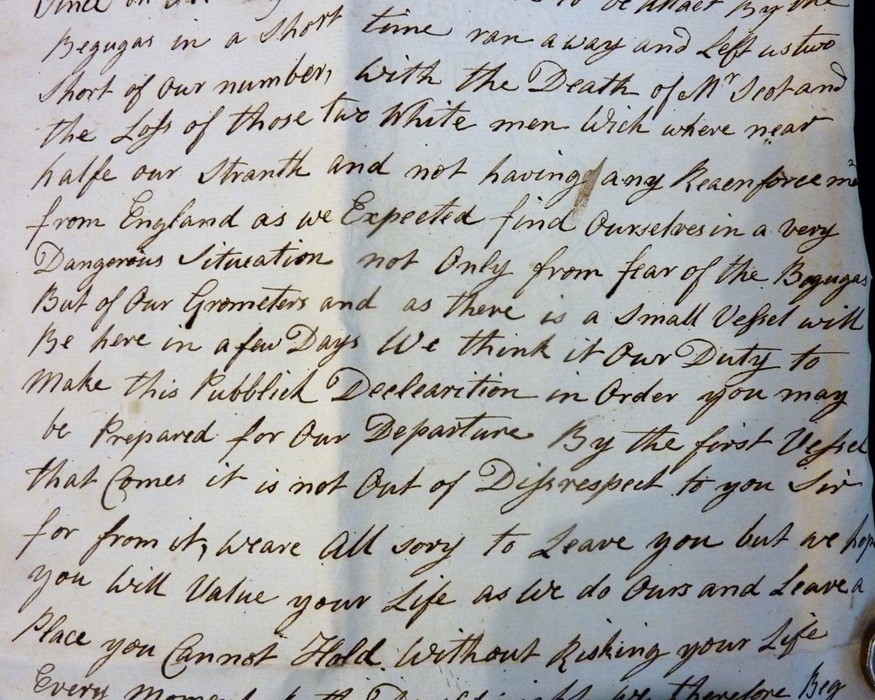 be attact By the
Begugas in a Short time ran away and Left us two
Short of our number, With the Death of Mr Scot and
the Loss of those two White men Wich where near
halfe our Stranth and not having any Reaenforceme
from England as we Expected find Ourselves in a very
Dangerous Situeation not Only from fear of the Begugas
But of Our Grometers and as there is a Small Vessel will
Be here in a few Days We think it Our Duty to
Make this Pubblick Declearition in Order you may
be Prepared for Our Departure By the first Vessel
that Comes it is not Out of Dissrespect to you Sir
for from it, weare All sory to Leave you but we hop
you Will Value your Life as We do Ours and Leave a
Place you Cannot Hold Without Risking your Life
Every we therefore Beg